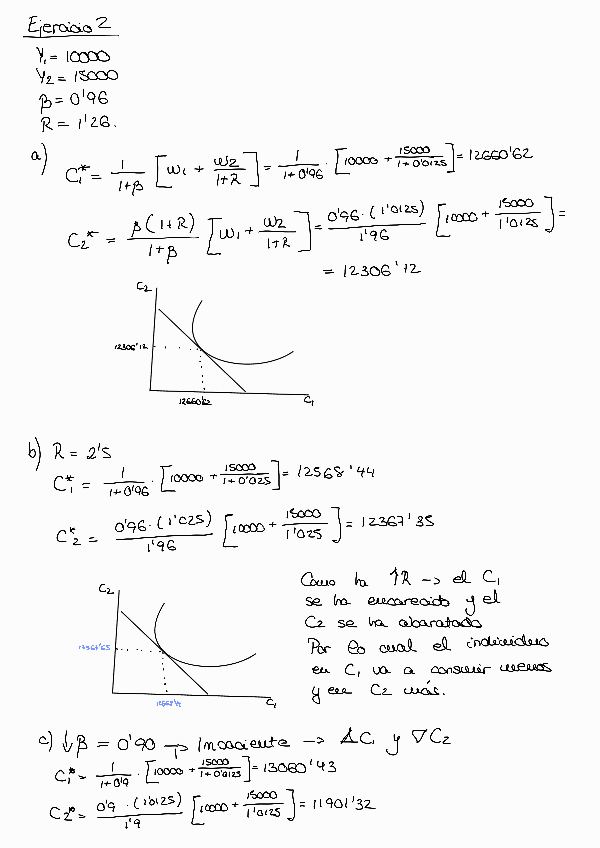 Ejercicio 2
Y₁ = 10000
Y₂ = 15000
β = 0'96
R = 1'26.
a) C₁* = 1/(1+β) [w₁ + w₂/(1+R)] = 1/(1+0'96) · [10000 + 15000/(1+0'0125)] = 12660'62
C₂* = β(1+R)/(1+β) [w₁ + w₂/(1+R)] = 0'96·(1'0125)/1'96 [10000 + 15000/1'0125] =
= 12306'12
C₂
12306'12
12660'62
C₁
b) R = 2'5
C₁* = 1/(1+0'96) · [10000 + 15000/(1+0'025)] = 12568'44
C₂* = 0'96·(1'025)/1'96 [10000 + 15000/1'025] = 12367'35
C₂
C₁
Como ha ↑R → el C₁
se ha encarecido y el
C₂ se ha abaratado
Por lo cual el individuo
en C₁ va a consumir menos
y en C₂ más.
c) ↓β = 0'90 → Impaciente → ΔC₁ y ∇C₂
C₁* = 1/(1+0'9) · [10000 + 15000/(1+0'0125)] = 13060'43
C₂* = 0'9·(1'0125)/1'9 [10000 + 15000/1'0125] = 11901'32